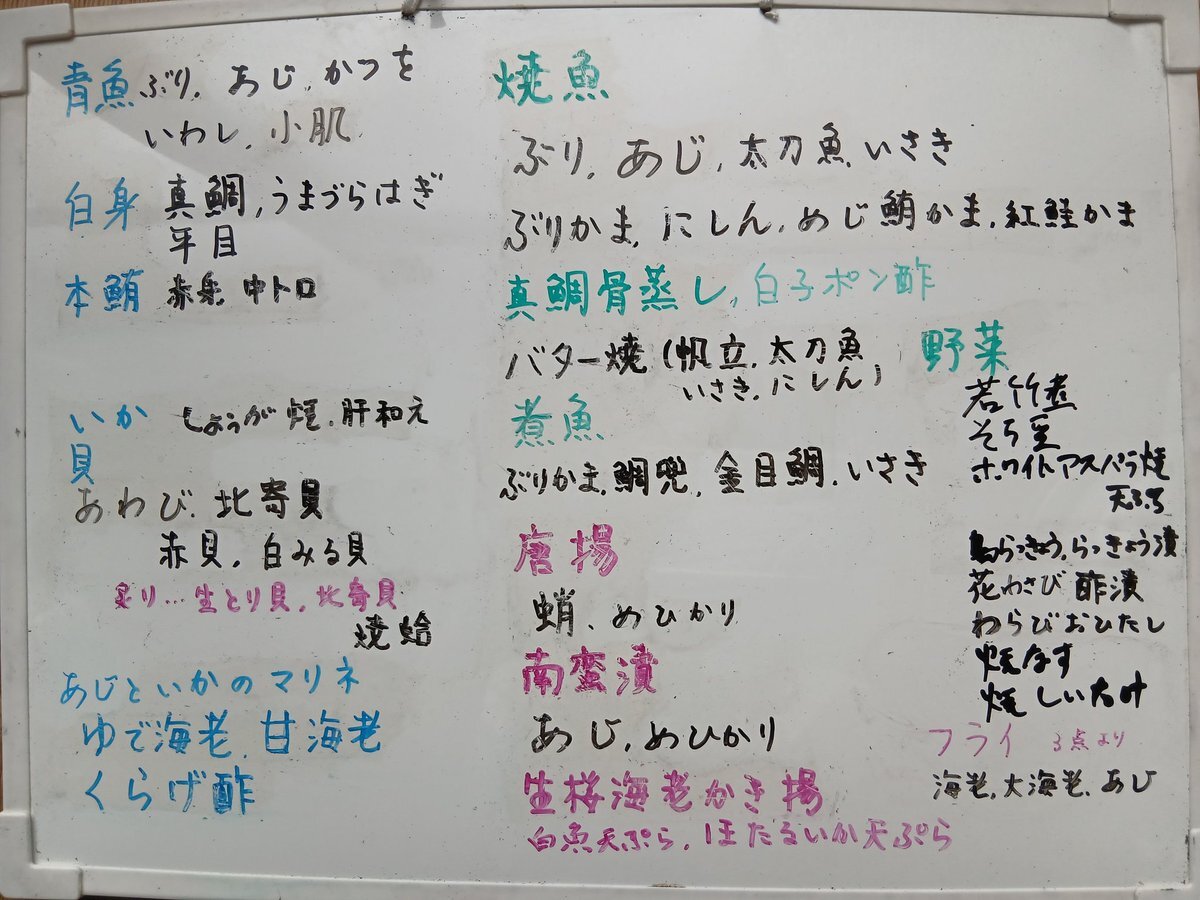 青魚 ぶり、あじ、かつを
いわし、小肌
白身 真鯛、うまづらはぎ
平目
本鮪 赤身、中トロ
いか しょうが焼、肝和え
貝
あわび、北寄貝
赤貝、白みる貝
炙り…生とり貝、北寄貝
焼蛤
あじといかのマリネ
ゆで海老、甘海老
くらげ酢
焼魚
ぶり、あじ、太刀魚、いさき
ぶりかま、にしん、めじ鮪かま、紅鮭かま
真鯛骨蒸し、白子ポン酢
バター焼(帆立、太刀魚
いさき、にしん)
煮魚
ぶりかま、鯛兜、金目鯛、いさき
唐揚
蛸、めひかり
南蛮漬
あじ、めひかり
生桜海老かき揚
白魚天ぷら、ほたるいか天ぷら
野菜
若竹煮
そら豆
ホワイトアスパラ焼
天ぷら
島らっきょう、らっきょう漬
花わさび 酢漬
わらびおひたし
焼なす
焼しいたけ
フライ 3点より
海老、大海老、あじ